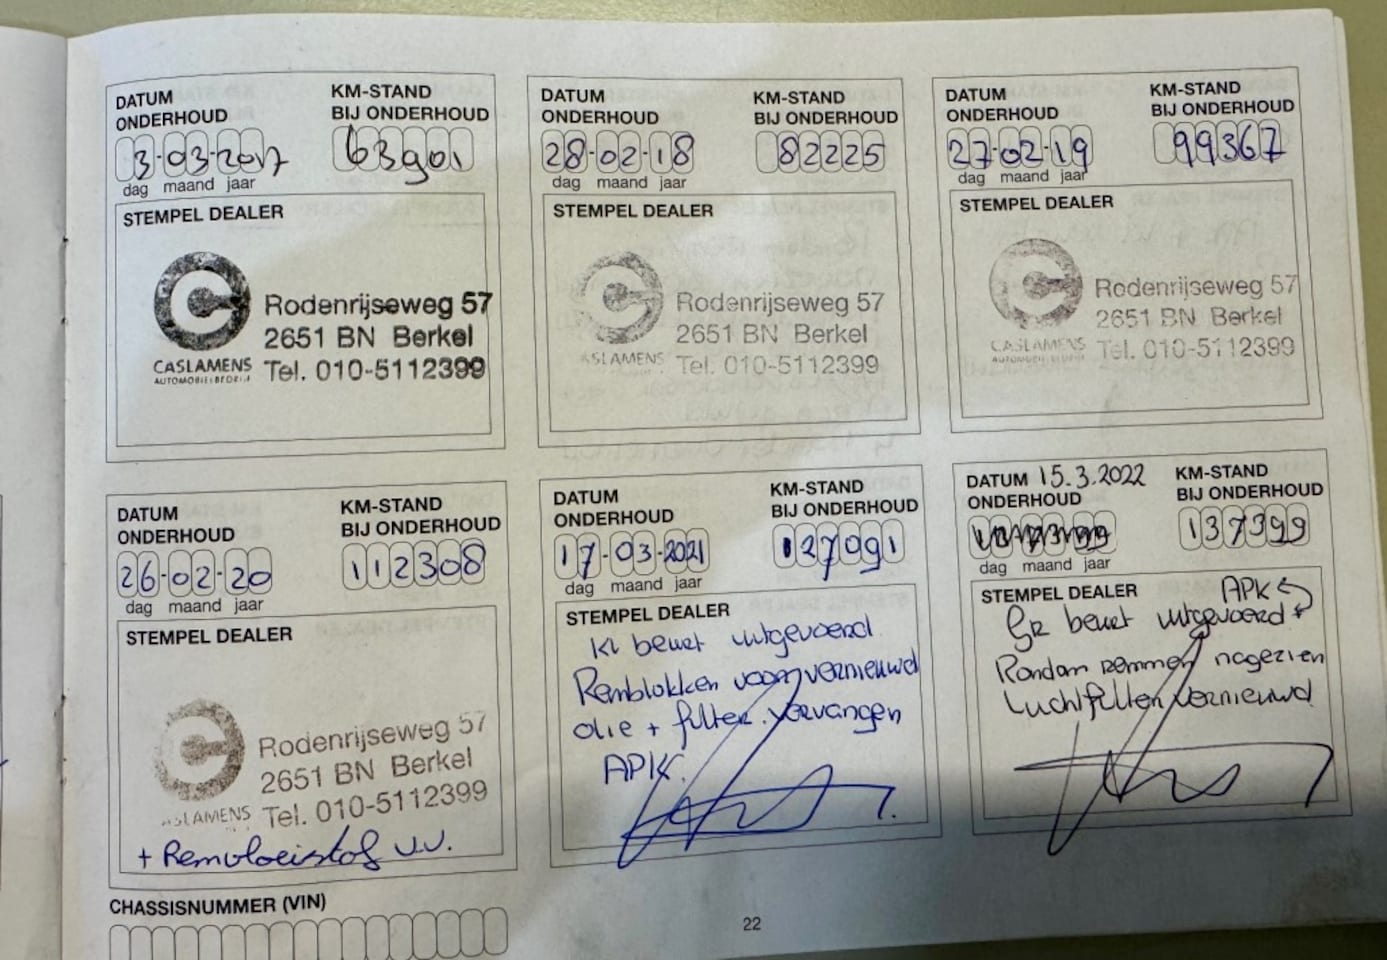 DATUM
ONDERHOUD
KM-STAND
BIJ ONDERHOUD
3-03-2017
63901
dag maand jaar
STEMPEL DEALER
CASLAMENS
AUTOMOBIELBEDRIJF
Rodenrijseweg 57
2651 BN Berkel
Tel. 010-5112399
DATUM
ONDERHOUD
KM-STAND
BIJ ONDERHOUD
28-02-18
82225
dag maand jaar
STEMPEL DEALER
ASLAMENS
Rodenrijseweg 57
2651 BN Berkel
Tel. 010-5112399
DATUM
ONDERHOUD
KM-STAND
BIJ ONDERHOUD
27-02-19
99367
dag maand jaar
STEMPEL DEALER
CASLAMENS
AUTOMOBIELBEDRIJF
Rodenrijseweg 57
2651 BN Berkel
Tel. 010-5112399
DATUM
ONDERHOUD
KM-STAND
BIJ ONDERHOUD
26-02-20
112308
dag maand jaar
STEMPEL DEALER
ASLAMENS
Rodenrijseweg 57
2651 BN Berkel
Tel. 010-5112399
+ Remvloeistof v.v.
DATUM
ONDERHOUD
KM-STAND
BIJ ONDERHOUD
17-03-2021
127091
dag maand jaar
STEMPEL DEALER
Kl beurt uitgevoerd
Remblokken voor vernieuwd
olie + filter vervangen
APK.
DATUM 15.3.2022
ONDERHOUD
KM-STAND
BIJ ONDERHOUD
137399
dag maand jaar
STEMPEL DEALER
APK
Gr beurt uitgevoerd +
Rondom remmen nagezien
Luchtfilter vernieuwd
CHASSISNUMMER (VIN)
22